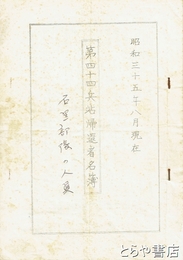 昭和三十五年八月現在
第四十四兵站帰還者名簿
石黒部隊の人員
とらや書店